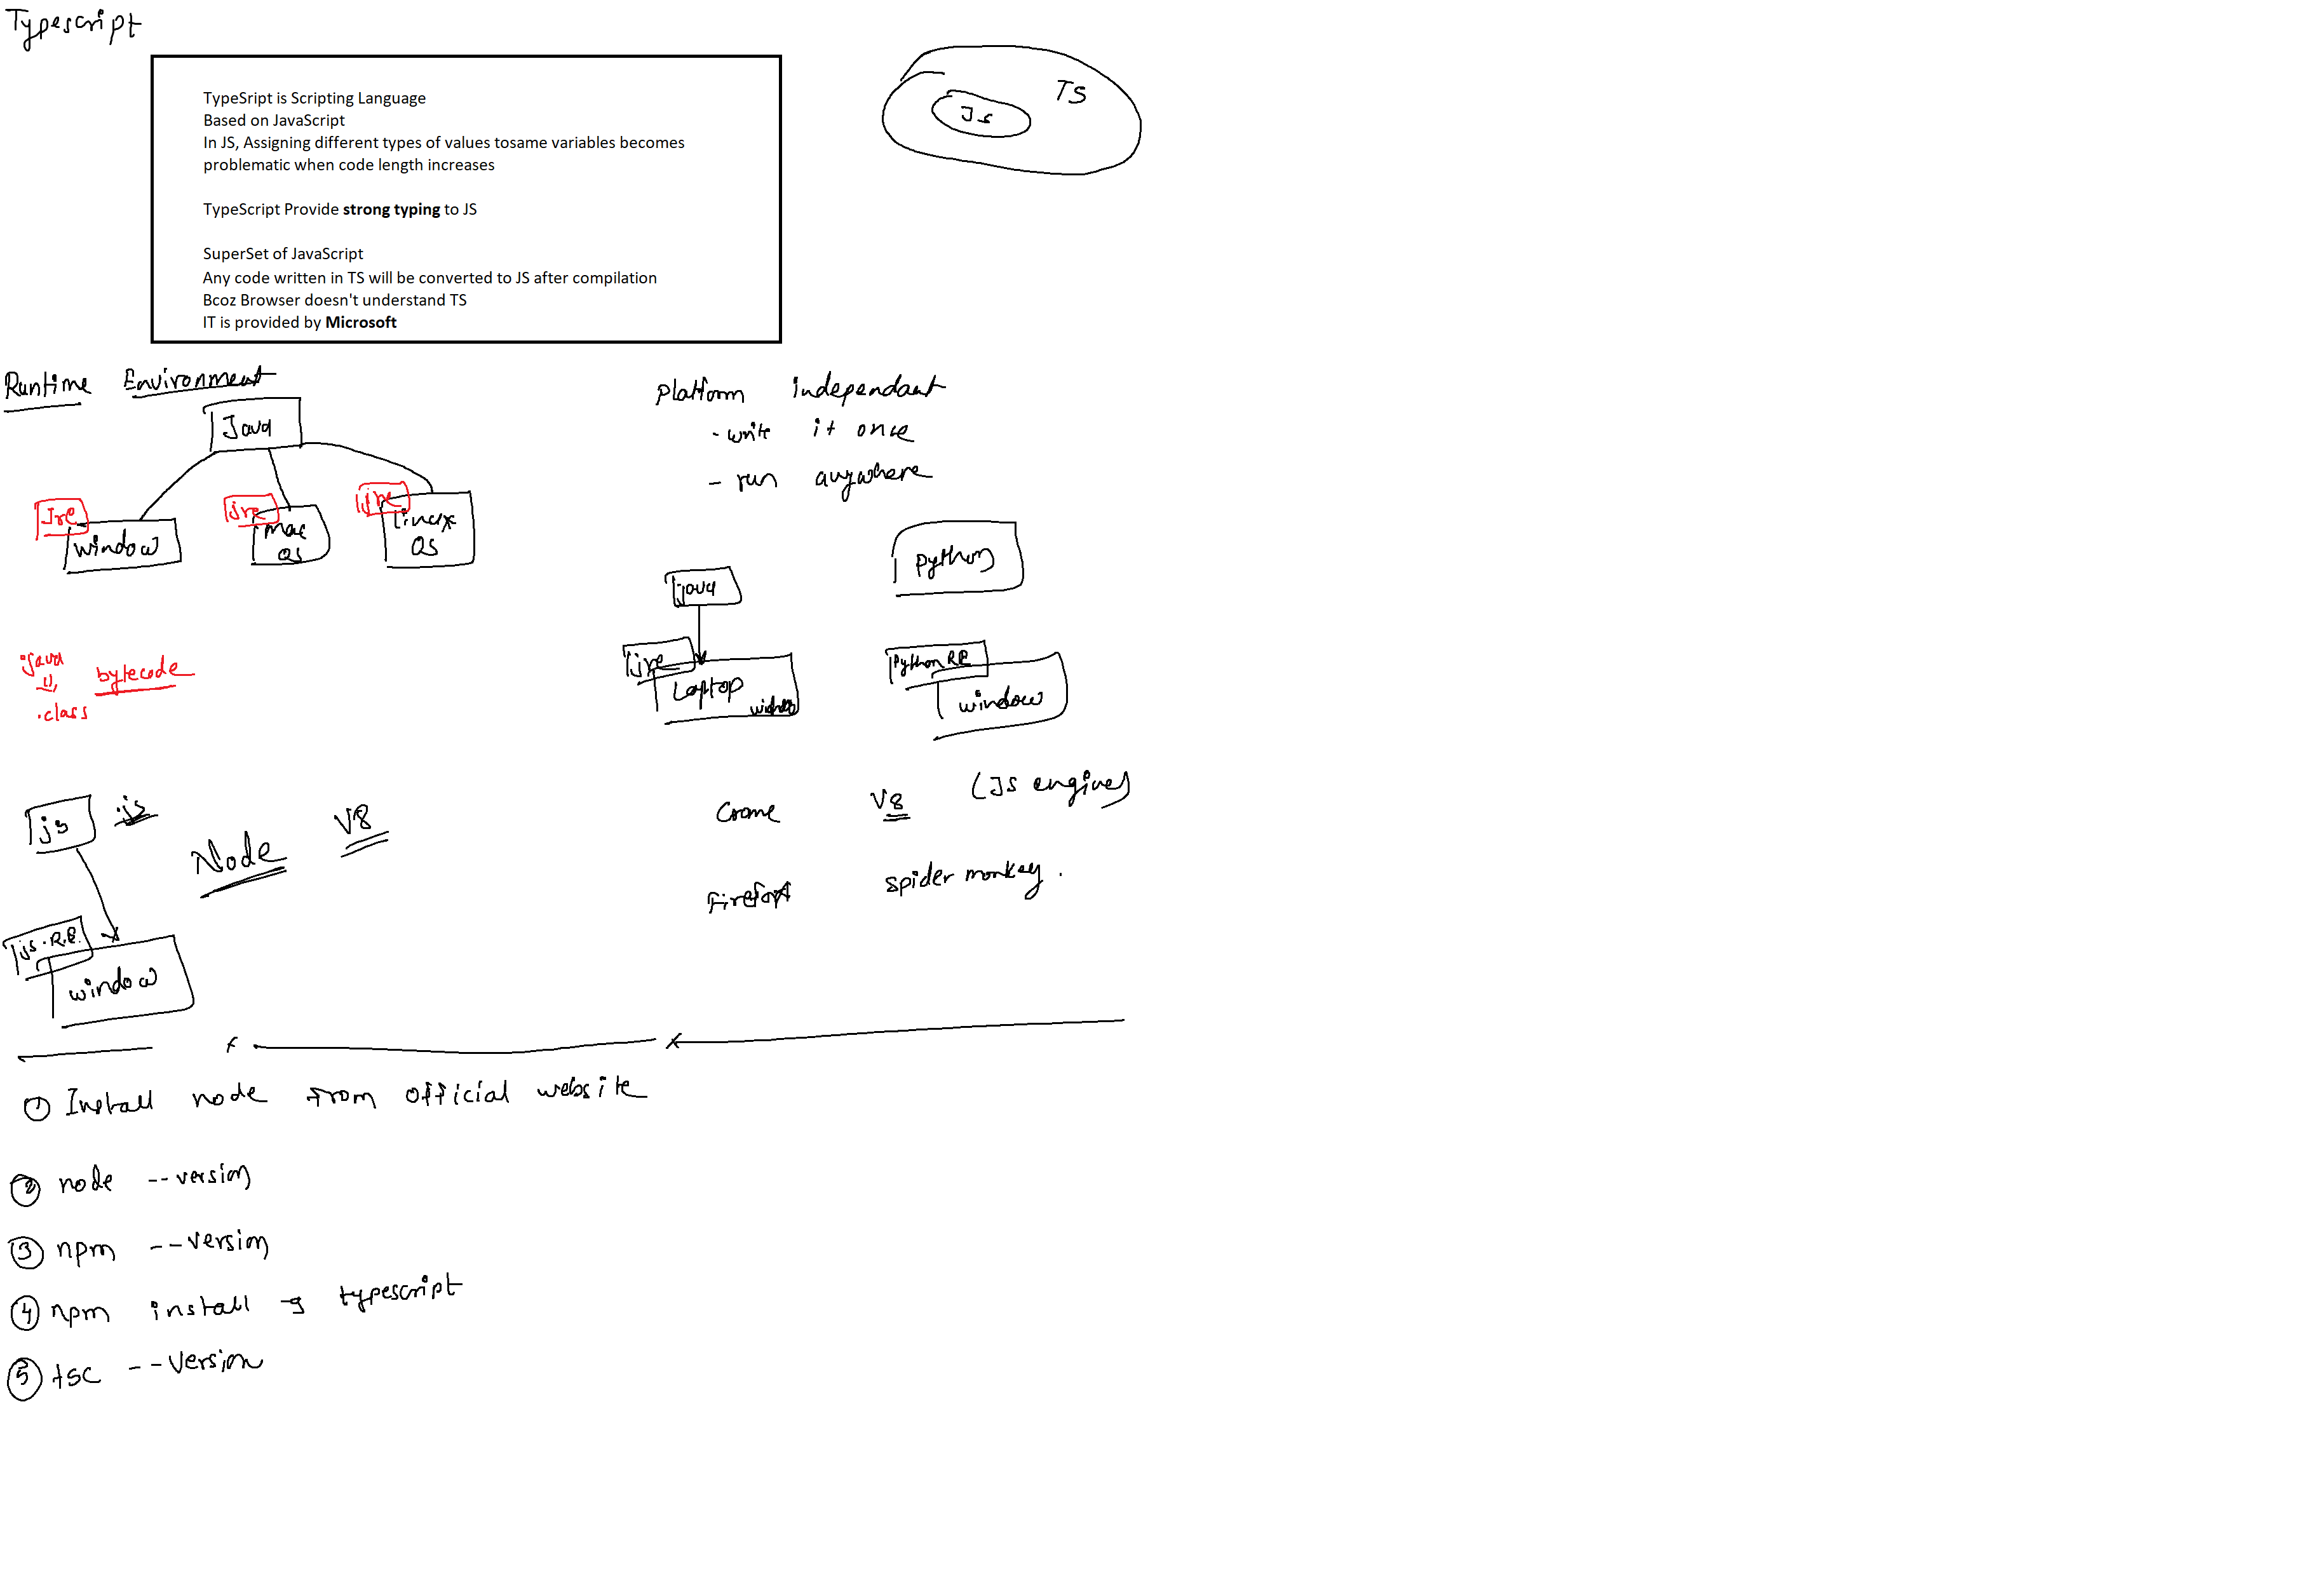 Typescript
TypeSript is Scripting Language
Based on JavaScript
In JS, Assigning different types of values tosame variables becomes
problematic when code length increases
TypeScript Provide strong typing to JS
SuperSet of JavaScript
Any code written in TS will be converted to JS after compilation
Bcoz Browser doesn't understand TS
IT is provided by Microsoft
TS
Js
Runtime Environment
Java
Jre
window
jre
mac
OS
jre
Linux
OS
Platform independant
- write it once
- run anywhere
java
jre
Laptop
window
python
Python RE
window
java
.class
bytecode
js
.js
Node
V8
js. R.E.
window
Crome V8 (JS engine)
Firefox spider monkey.
① Install node from official website
② node --version
③ npm --version
④ npm install -g typescript
⑤ tsc --version